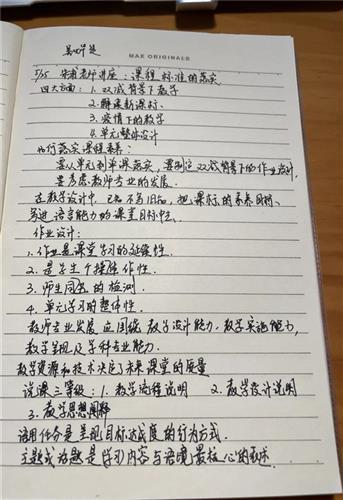 MAX ORIGINALS
5/15 老师讲座：课程标准的落实
四大方面：1. 双减背景下教学
2. 解读新课标.
3. 疫情下的教学
4. 单元整体设计
落实课程素养：
要从单元到单课落实，要到这双减背景下的作业设计，
要考虑教师专业的发展.
在教学设计中，把课标的素养目标，
语言能力的课堂目标中去.
作业设计：
1. 作业是课堂学习的延续性.
2. 是学生个操作性.
3. 师生的检测.
4. 单元学习的整体性.
教师专业发展应围绕教学设计能力，教学实施能力，
教学及学科专业能力.
教学资源和技术决定了未来课堂的质量
说课三等级：1. 教学流程说明 2. 教学设计说明
3. 教学思想阐释
语用任务是呈现目标达成度的行为方式.
主题或话题是学习内容与语境最核心的表述.